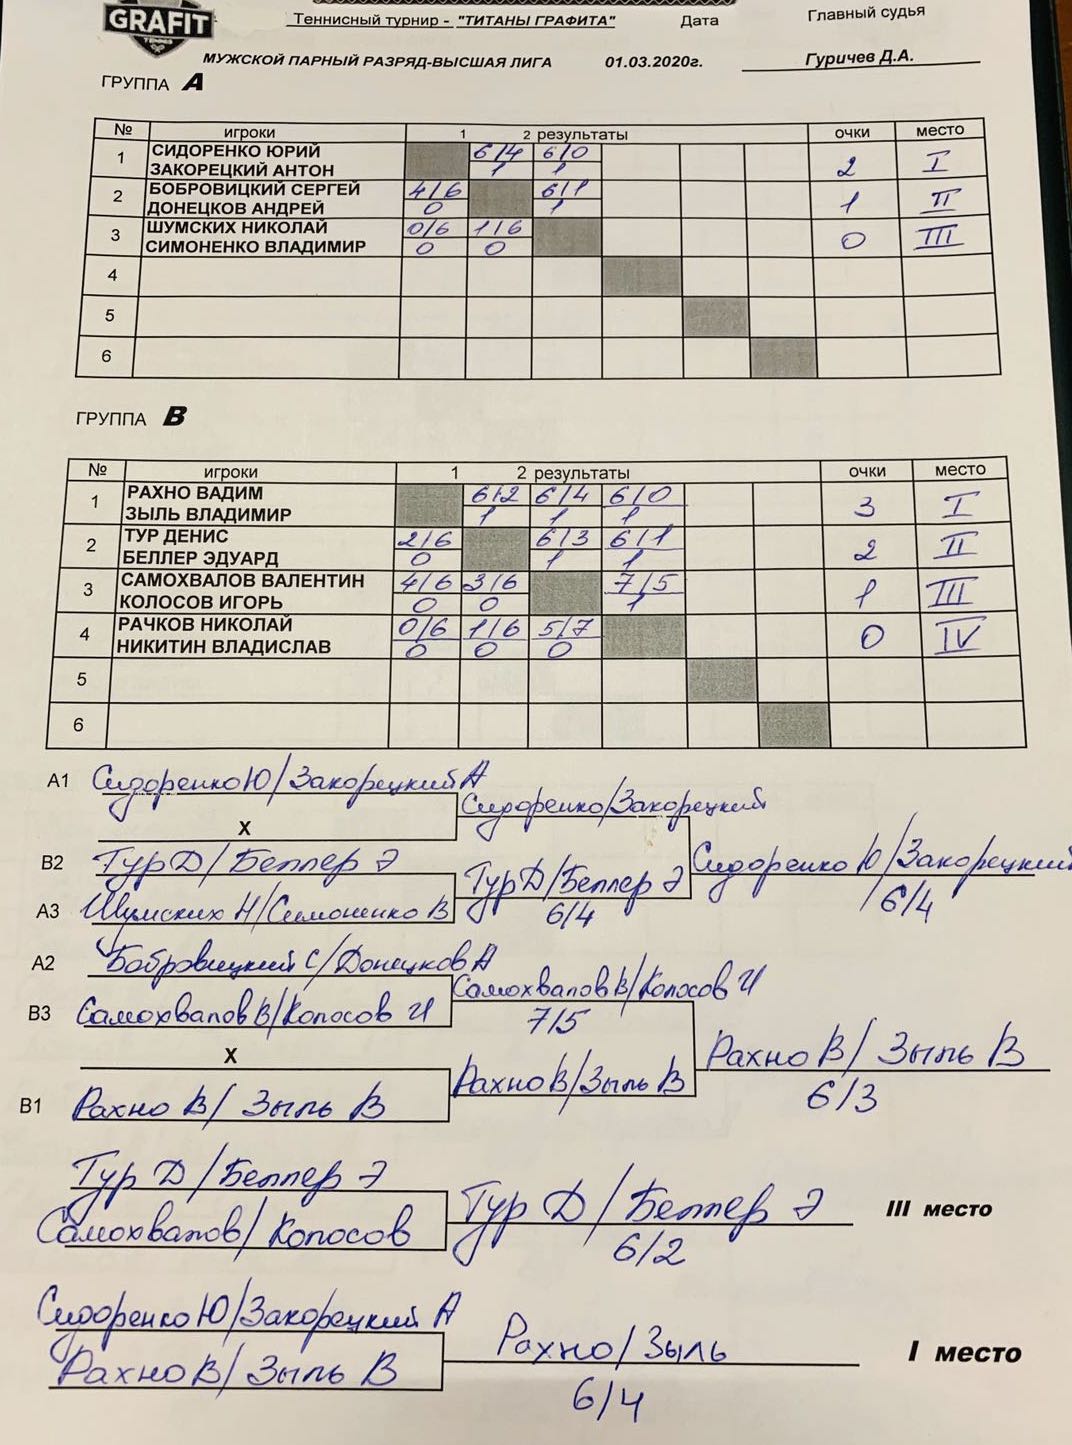 GRAFIT
TENNIS
Теннисный турнир - "ТИТАНЫ ГРАФИТА" Дата Главный судья
МУЖСКОЙ ПАРНЫЙ РАЗРЯД-ВЫСШАЯ ЛИГА 01.03.2020г. Гуричев Д.А.
ГРУППА А
№ игроки 1 2 результаты очки место
1 СИДОРЕНКО ЮРИЙ 6/4 6/0
ЗАКОРЕЦКИЙ АНТОН 1 1 2 I
2 БОБРОВИЦКИЙ СЕРГЕЙ 4/6 6/1
ДОНЕЦКОВ АНДРЕЙ 0 1 1 II
3 ШУМСКИХ НИКОЛАЙ 0/6 1/6
СИМОНЕНКО ВЛАДИМИР 0 0 0 III
4
5
6
ГРУППА В
№ игроки 1 2 результаты очки место
1 РАХНО ВАДИМ 6/2 6/4 6/0
ЗЫЛЬ ВЛАДИМИР 1 1 1 3 I
2 ТУР ДЕНИС 2/6 6/3 6/1
БЕЛЛЕР ЭДУАРД 0 1 1 2 II
3 САМОХВАЛОВ ВАЛЕНТИН 4/6 3/6 7/5
КОЛОСОВ ИГОРЬ 0 0 1 1 III
4 РАЧКОВ НИКОЛАЙ 0/6 1/6 5/7
НИКИТИН ВЛАДИСЛАВ 0 0 0 0 IV
5
6
А1 Сидоренко Ю/Закорецкий А
Сидоренко/Закорецкий
Х
В2 Тур Д/Беллер Э
Сидоренко Ю/Закорецкий
6/4
Тур Д/Беллер Э
6/4
А3 Шумских Н/Симоненко В
А2 Бобровицкий С/Донецков А
Самохвалов В/Колосов И
7/5
В3 Самохвалов В/Колосов И
Х
Рахно В/Зыль В
6/3
Рахно В/Зыль В
В1 Рахно В/Зыль В
Тур Д/Беллер Э
Тур Д/Беллер Э III место
6/2
Самохвалов/Колосов
Сидоренко Ю/Закорецкий А
Рахно/Зыль I место
6/4
Рахно В/Зыль В